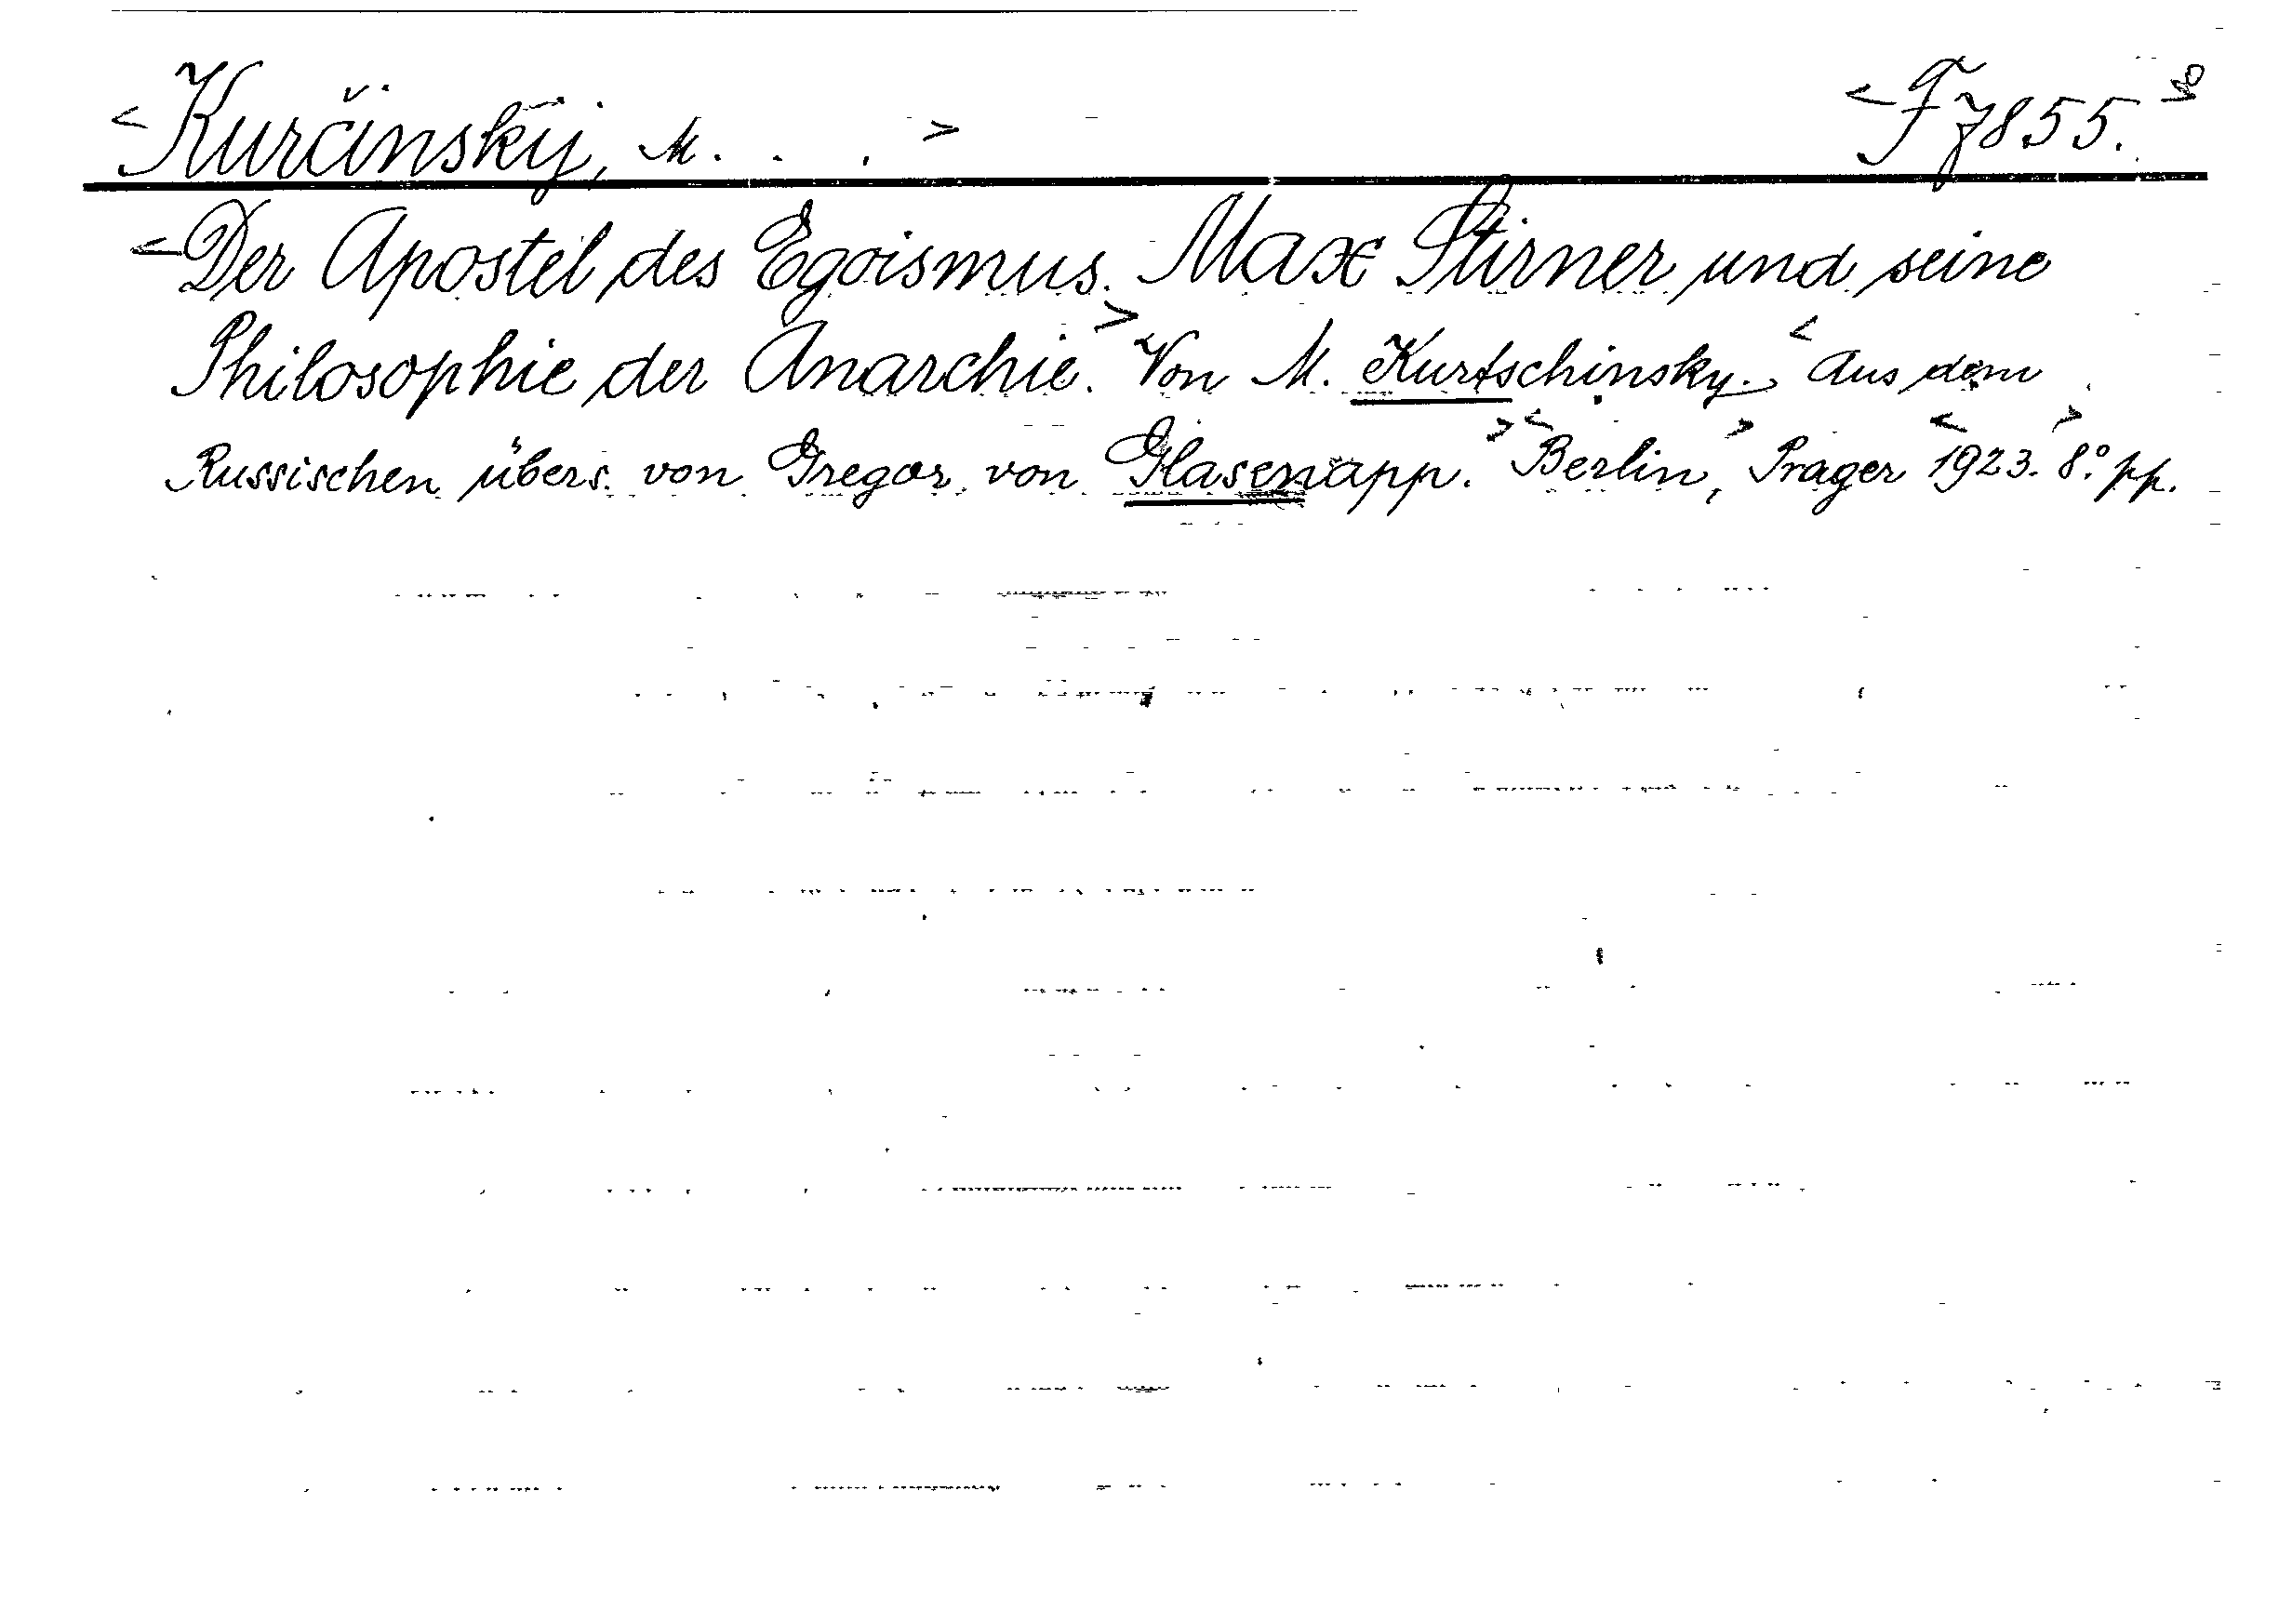 <Kurčinskij, M. . . .> <F 7855.
<Der Apostel des Egoismus. Max Stirner und seine
Philosophie der Anarchie.> Von M. Kurtschinsky. <Aus dem
Russischen übers. von Gregor von Glasenapp.> <Berlin,> Prager <1923.> 8° pp.